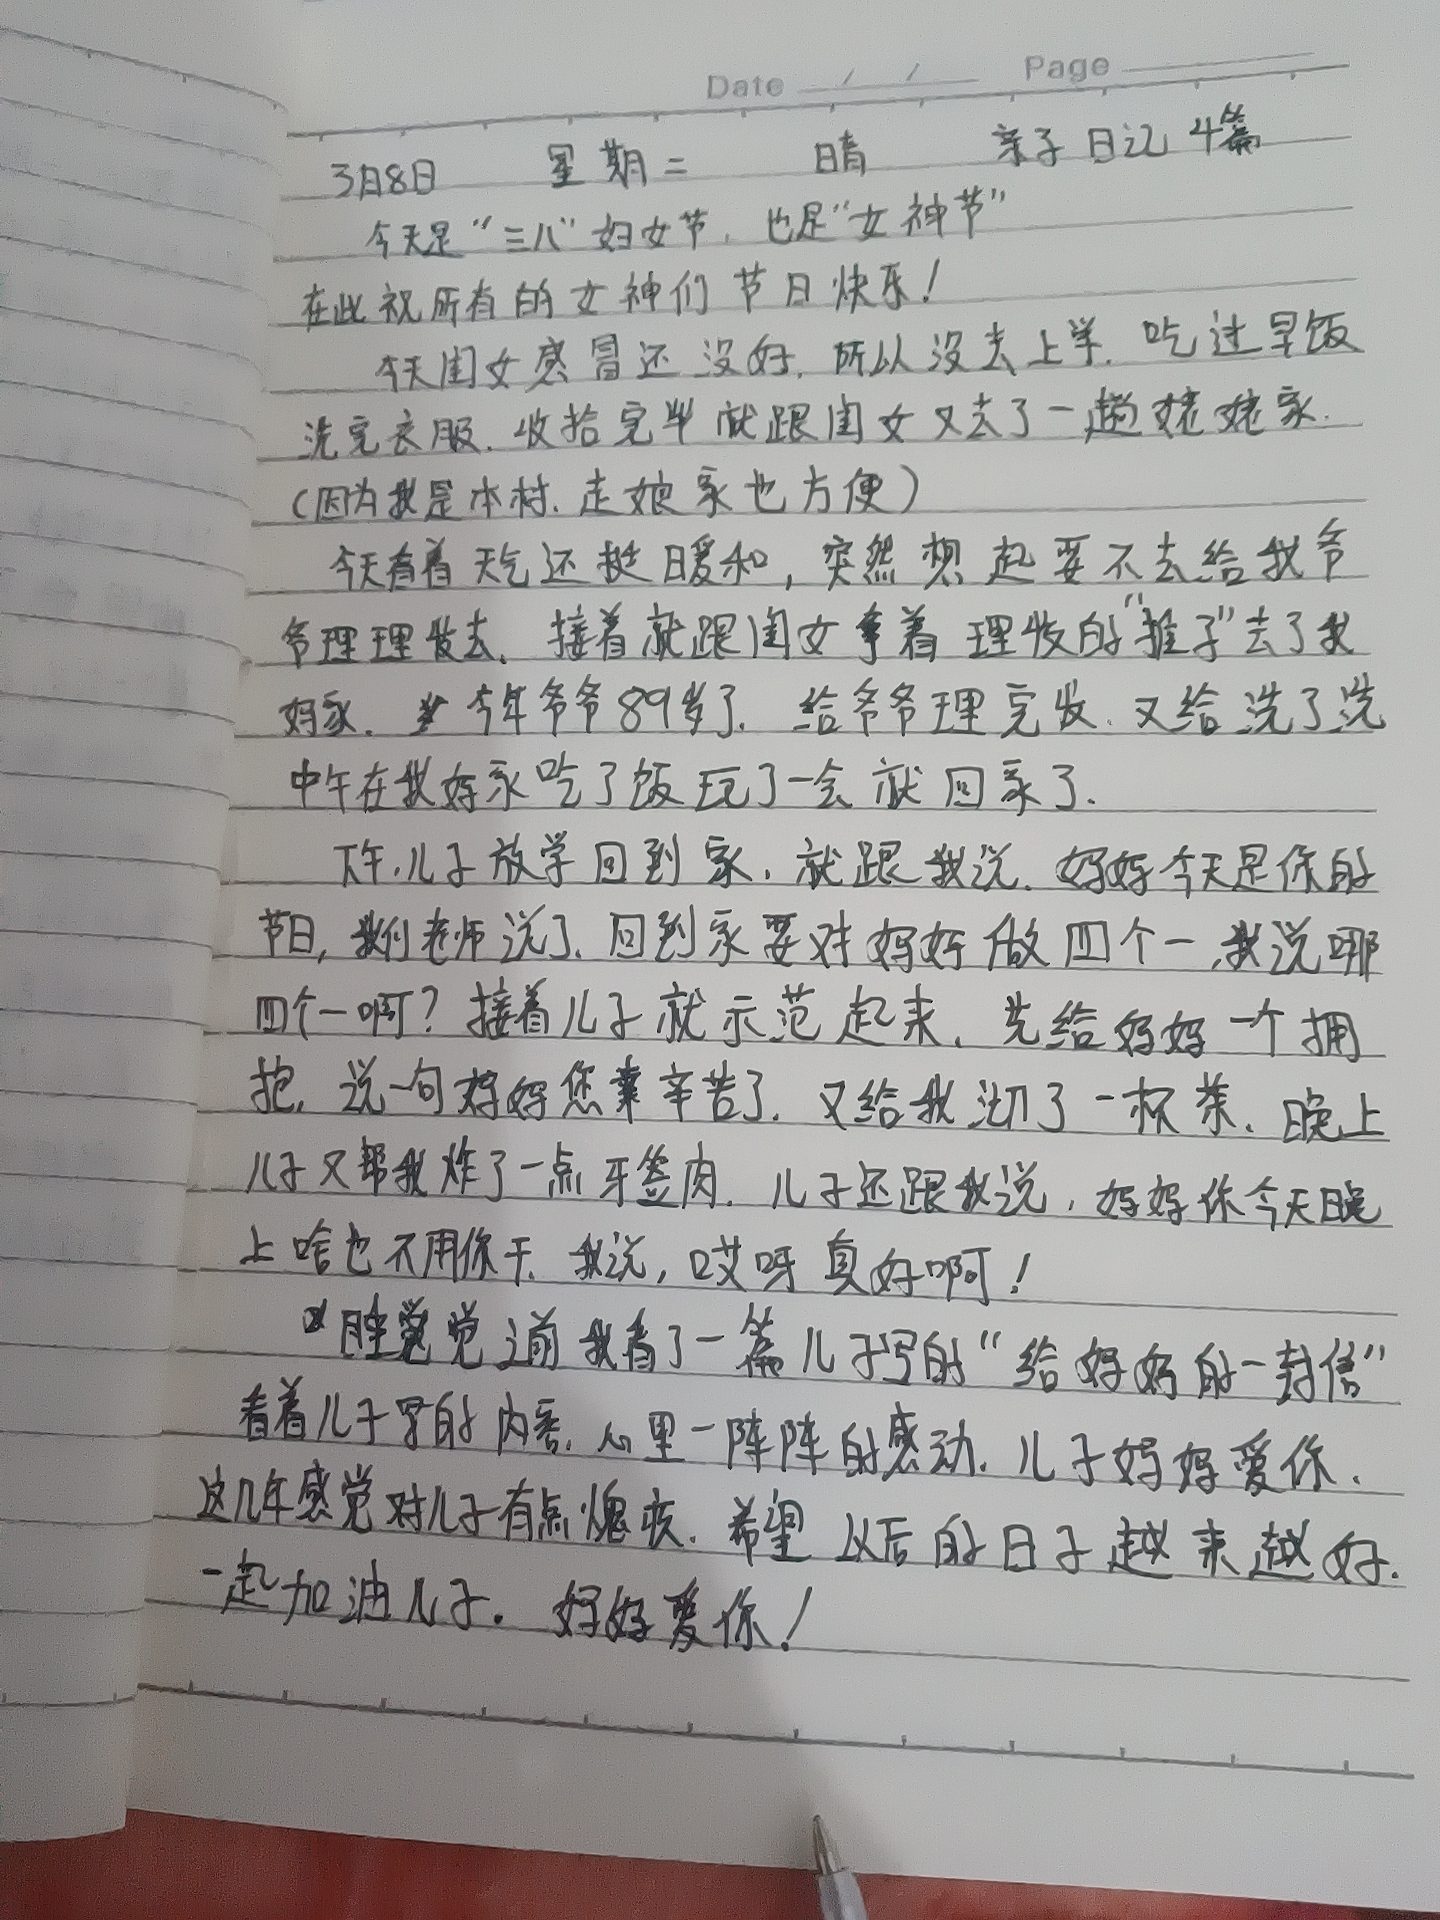 Date / / Page
3月8日 星期二 晴 亲子日记 4篇
今天是“三八”妇女节，也是“女神节”
在此祝所有的女神们节日快乐！
今天闺女感冒还没好，所以没去上学．吃过早饭
洗完衣服．收拾完毕就跟闺女又去了一趟姥姥家．
（因为我是本村．走娘家也方便）
今天看着天气还挺暖和，突然想起要不去给我爷
爷理理发去．接着就跟闺女拿着理发的“推子”去了我
妈家．今年爷爷89岁了．给爷爷理完发．又给洗了洗
中午在我妈家吃了饭玩了一会就回家了．
下午．儿子放学回到家．就跟我说．妈妈今天是你的
节日，我们老师说了．回到家要对妈妈做四个一．我说哪
四个一啊？接着儿子就示范起来．先给妈妈一个拥
抱．说一句妈妈您辛苦了．又给我沏了一杯茶．晚上
儿子又帮我炸了一点牙签肉．儿子还跟我说，妈妈你今天晚
上啥也不用你干．我说，哎呀真好啊！
睡觉之前我看了一篇儿子写的“给妈妈的一封信”
看着儿子写的内容．心里一阵阵的感动．儿子妈妈爱你．
这几年感觉对儿子有点愧疚．希望以后的日子越来越好．
一起加油儿子．妈妈爱你！